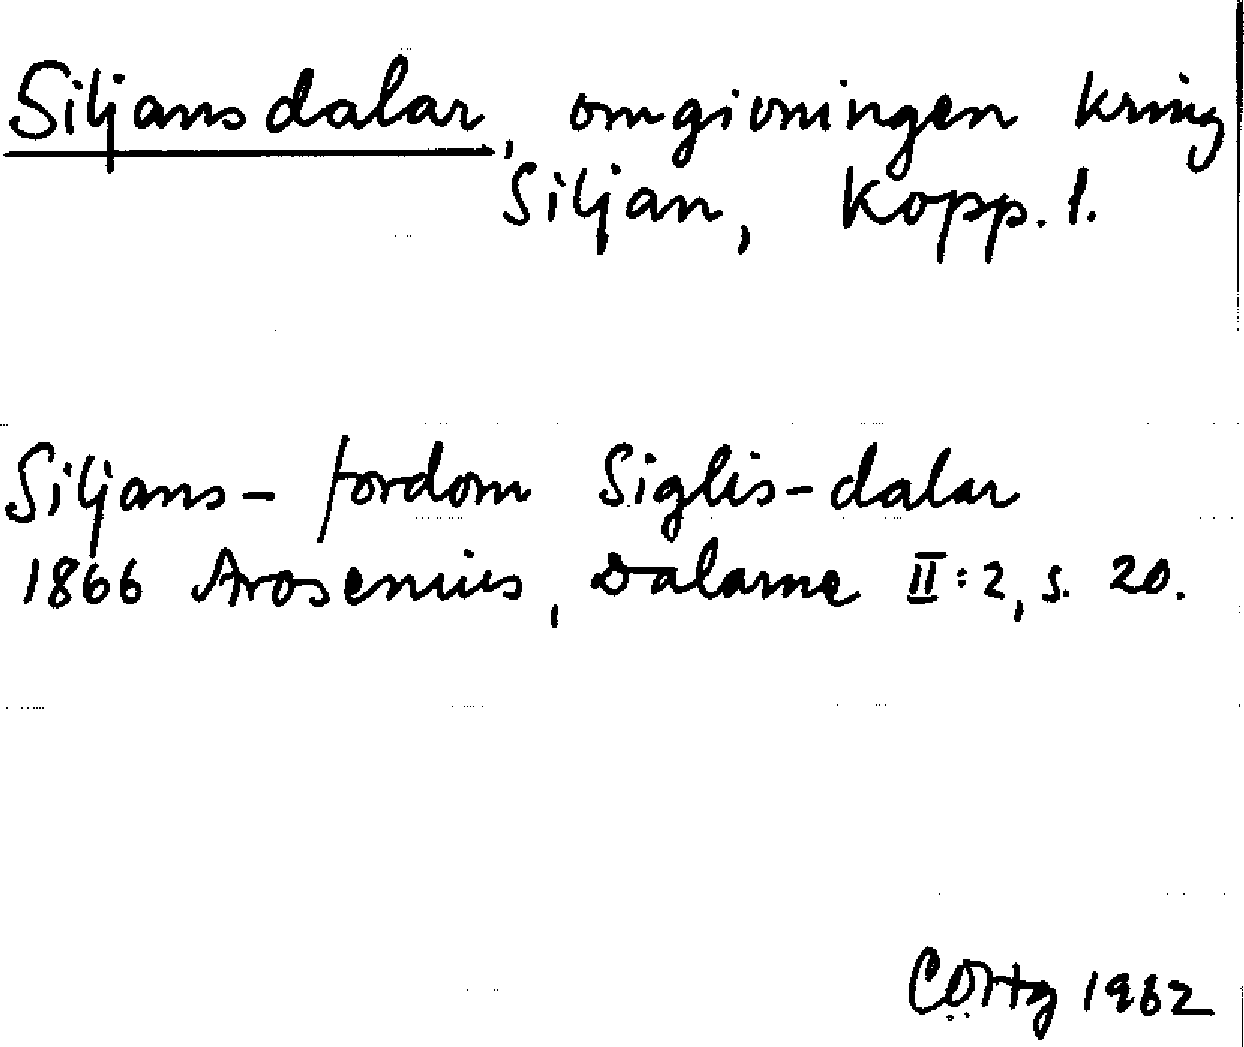 Siljansdalar, omgivningen kring
Siljan, Kopp. l.
Siljans- fordom Siglis-dalar
1866 Arosenius, Dalarne II:2, s. 20.
CÖrtg 1962